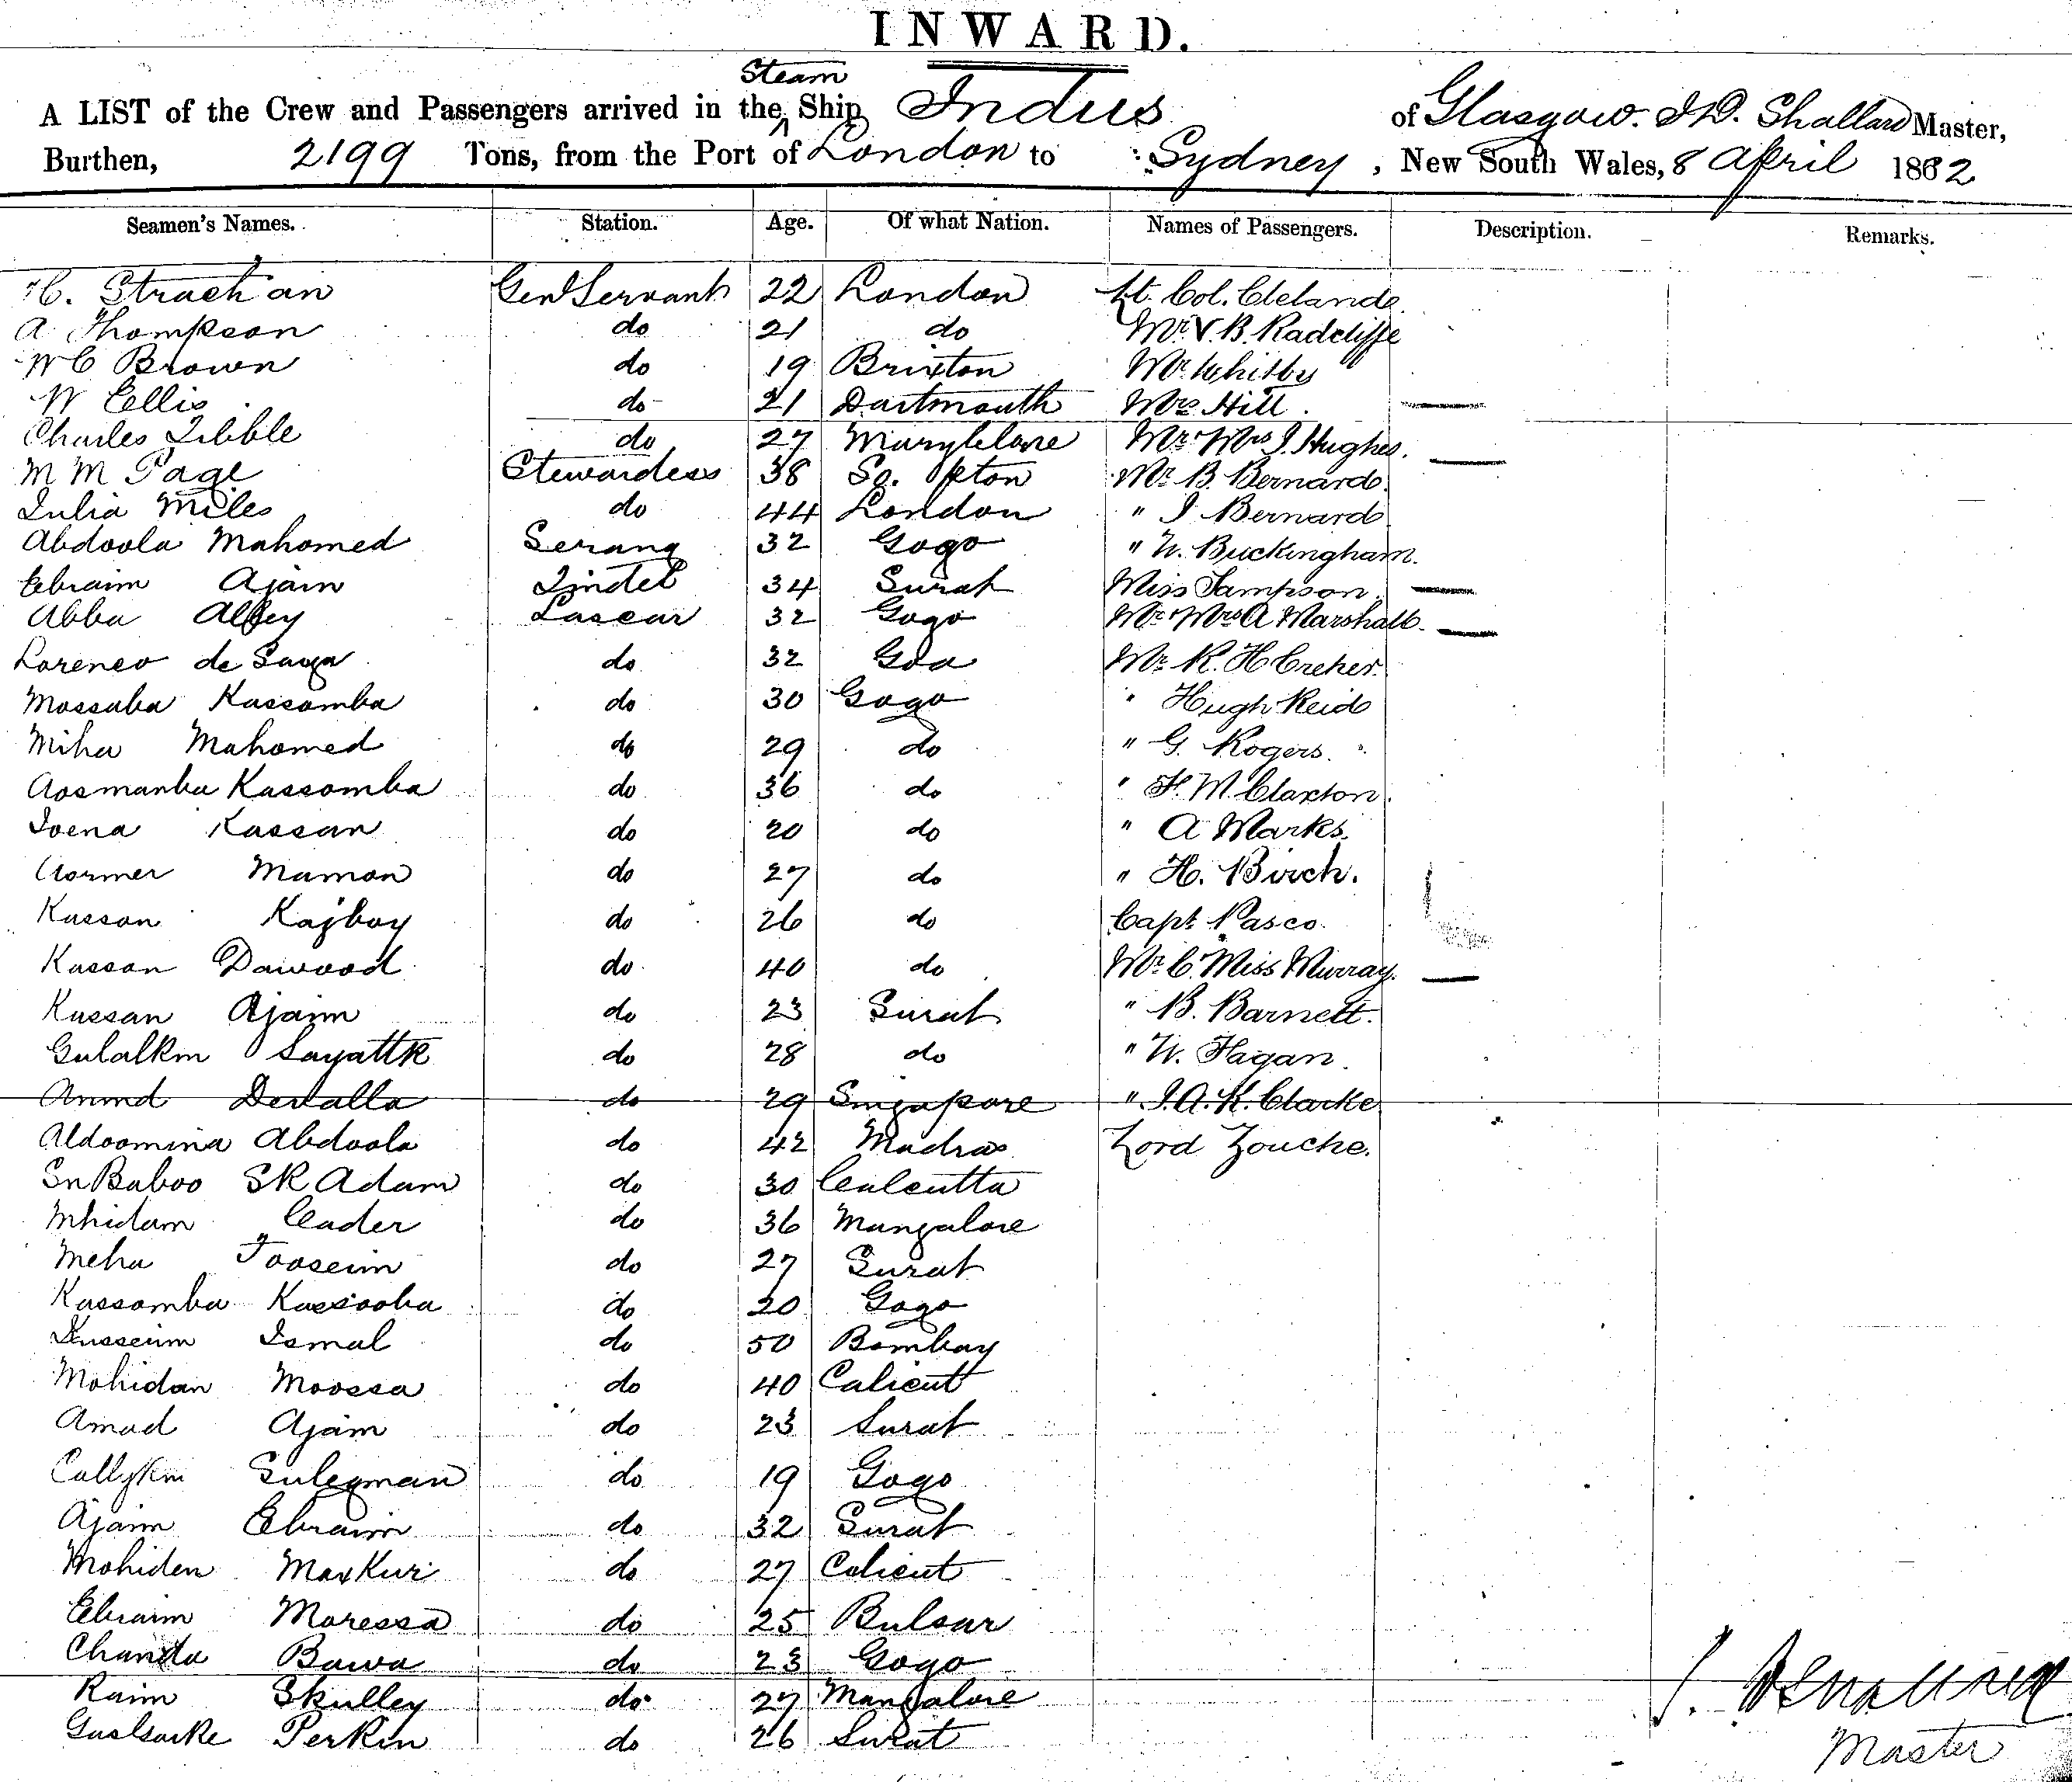 INWARD.
Steam
A LIST of the Crew and Passengers arrived in the Ship Indus of Glasgow. J D. Shallard Master,
Burthen, 2199 Tons, from the Port of London to Sydney, New South Wales, 8 April 1882
Seamen's Names. Station. Age. Of what Nation. Names of Passengers. Description. Remarks.
H. Strachan Genl Servant 22 London Lt. Col. Clelande.
A Thompson do 21 do Mr V. B. Radcliffe
W C Brown do 19 Brixton Mr Whitby
W Ellis do 21 Dartmouth Mrs Hill.
Charles Tibble do 27 Marylebone Mr Mrs J. Hughes.
M M Page Stewardess 38 So. Pton Mr B. Bernard.
Julia Miles do 44 London " J Bernard
Abdoola Mahomed Serang 32 Gogo " W. Buckingham.
Ebraim Ajam Tindel 34 Surat Miss Sampson.
Abba Alley Lascar 32 Gogo Mr Mrs A Marshall.
Lorenco de Souza do 32 Goa Mr R. H Creher.
Mossaba Kassomba do 30 Gogo " Hugh Reid
Miha Mahomed do 29 do " G. Rogers.
Aosmanba Kassomba do 36 do " F. M. Claxton.
Joena Kassan do 20 do " A Marks.
Oormer Mamon do 27 do " H. Birch.
Kasson Kajboy do 26 do Capt Pasco.
Kasson Dawood do 40 do Mr C. Miss Murray.
Kassan Ajam do 23 Surat " B. Barnett.
Gulalkm Sayattk do 28 do " W. Fagan.
Anmd Devalla do 29 Singapore " J. A. K. Clarke
Aldoomina Abdoola do 42 Madras Lord Zouche.
Sn Baboo SK Adam do 30 Calcutta
Mhidam Cader do 36 Mangalore
Meha Jooseim do 27 Surat
Kassomba Kassooba do 20 Gogo
Husseim Ismal do 50 Bombay
Mohidan Moossa do 40 Calicut
Amad Ajam do 23 Surat
Callykm Suleyman do 19 Gogo
Ajam Ebraim do 32 Surat
Mohiden Maxkur do 27 Calicut
Ebraim Moressa do 25 Bulsar
Chanda Bawa do 23 Gogo
Raim Skulley do 27 Mangalore
Perkin do 26 Surat
Master